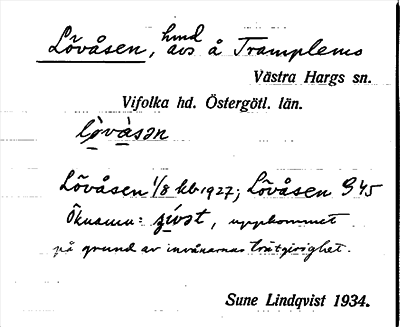 Lövåsen, hmd avs å Tramplems
Västra Hargs sn.
Vifolka hd. Östergötl. län.
lòvàsən
Lövåsen 1/8 hb 1927; Lövåsen G 45
Öknamn: zívst, uppkommet
på grund av invånarnas trätgirighet.
Sune Lindqvist 1934.